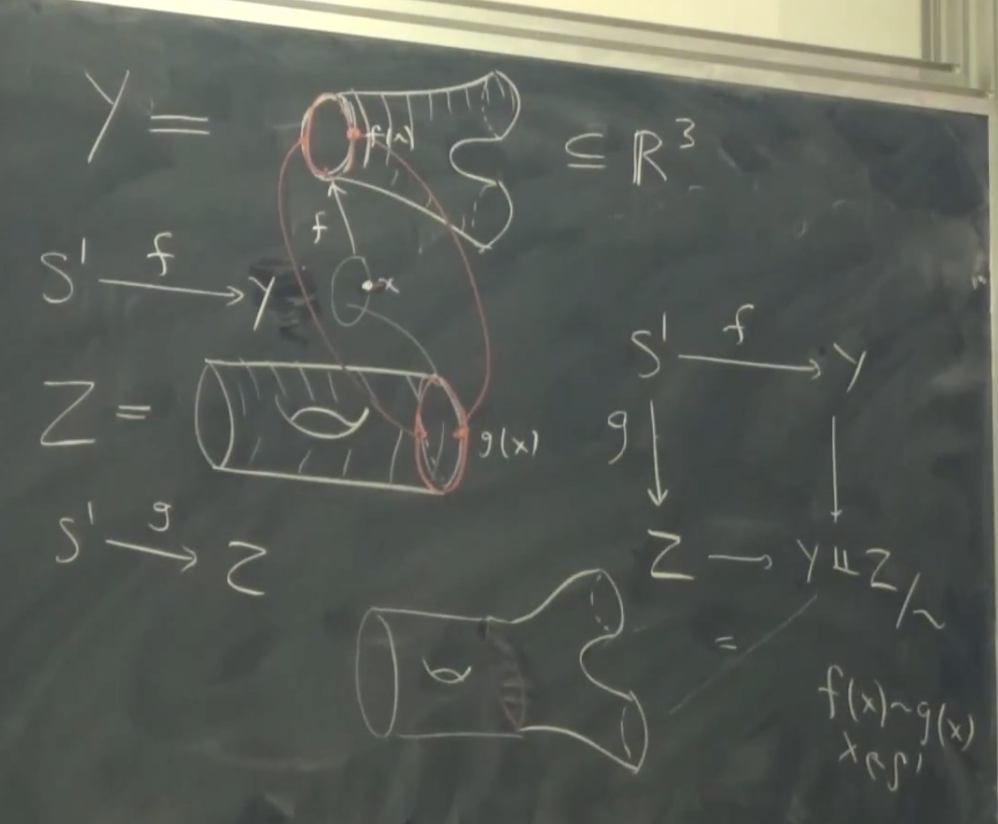 Y = ⊆ ℝ³
f(x)
f
x
S¹ —f→ Y
Z =
g(x)
S¹ —g→ Z
S¹ —f→ Y
g ↓ ↓
Z → Y ⊔ Z / ~
=
f(x) ~ g(x)
x ∈ S¹